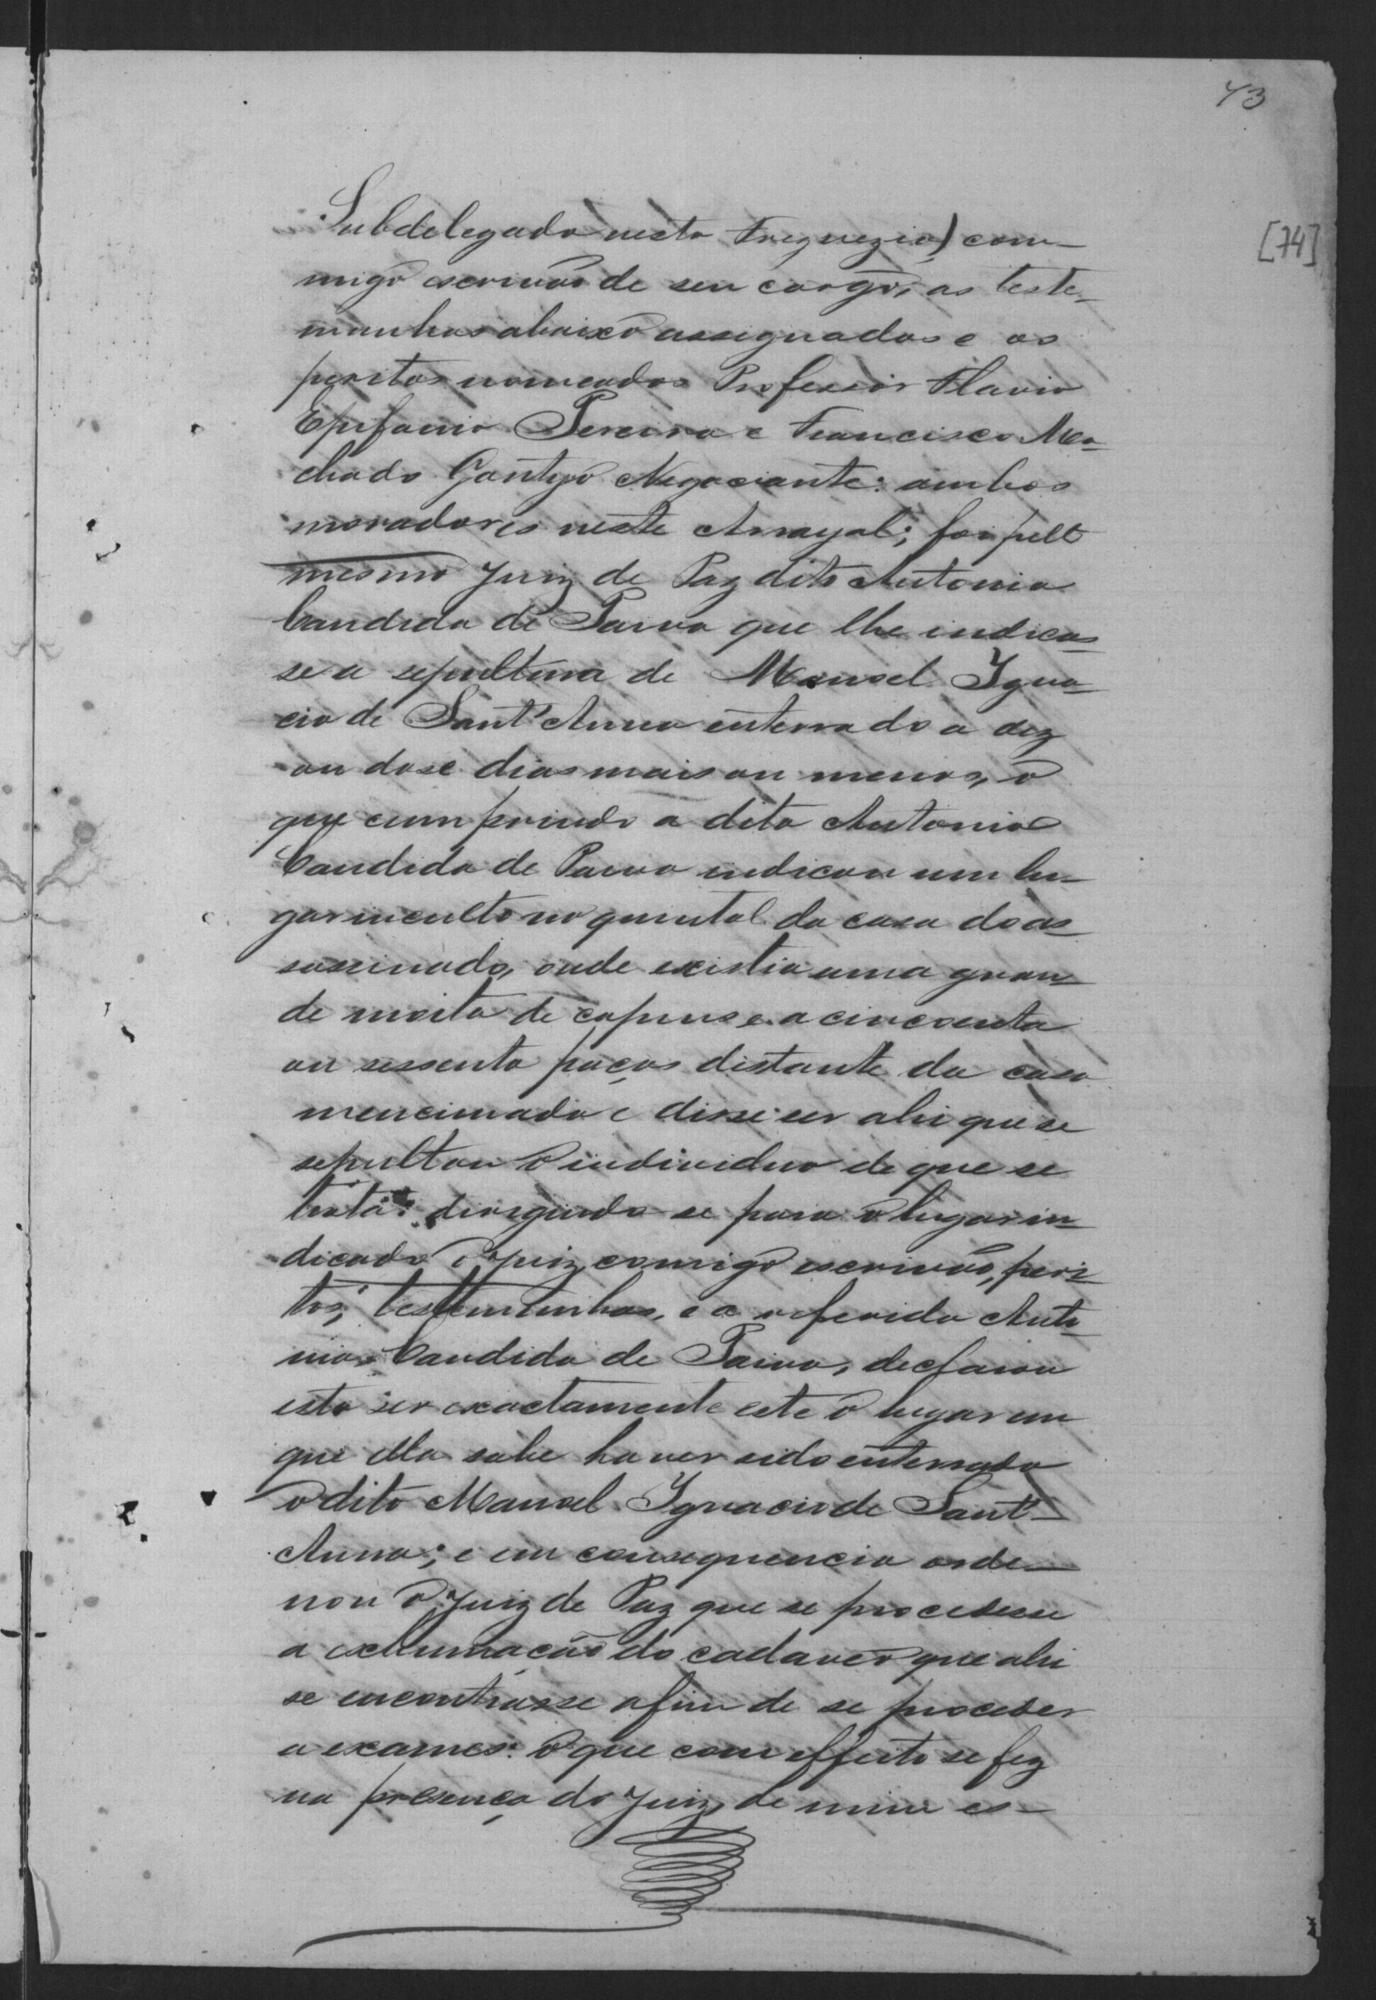 73
[74]
Subdelegado nesta Freguezia) com-
migo escrivão de seu cargo, as teste-
munhas abaixo assignadas e os
peritos nomeados Professor Flavio
Epifanio Pereira e Francisco Ma-
chado Negociante: ambos
moradores neste Arrayal; foi pelo
mesmo Juiz de Paz dito Antonia
Candida de Paiva que lhe indicas-
se a sepultura de Manoel Igna-
cio de Sant'Anna enterrado a dez
ou dose dias mais ou menos, o
que cumprindo a dita Antonia
Candida de Paiva indicou um lu-
gar inculto no quintal da casa do as-
sassinado, onde existia uma gran-
de moita de capim e a cincoenta
ou sessenta paços distante da casa
mencionada e disse ser ahi que se
sepultou o individuo de que se
trata: dirigindo se para o lugar in-
dicado o Juiz, comigo escrivão, peri-
tos, testemunhas, e a referida Anto-
nia Candida de Paiva, declarou
esta ser exactamente este o lugar em
que ella sabe haver sido enterrado
o dito Manoel Ignacio de Sant'-
Anna; e em consequencia orde-
nou o Juiz de Paz que se procedesse
a exhumação do cadaver que ahi
se encontrasse afim de se proceder
a exames: o que com effeito se fez
na presença do Juiz, de mim es-